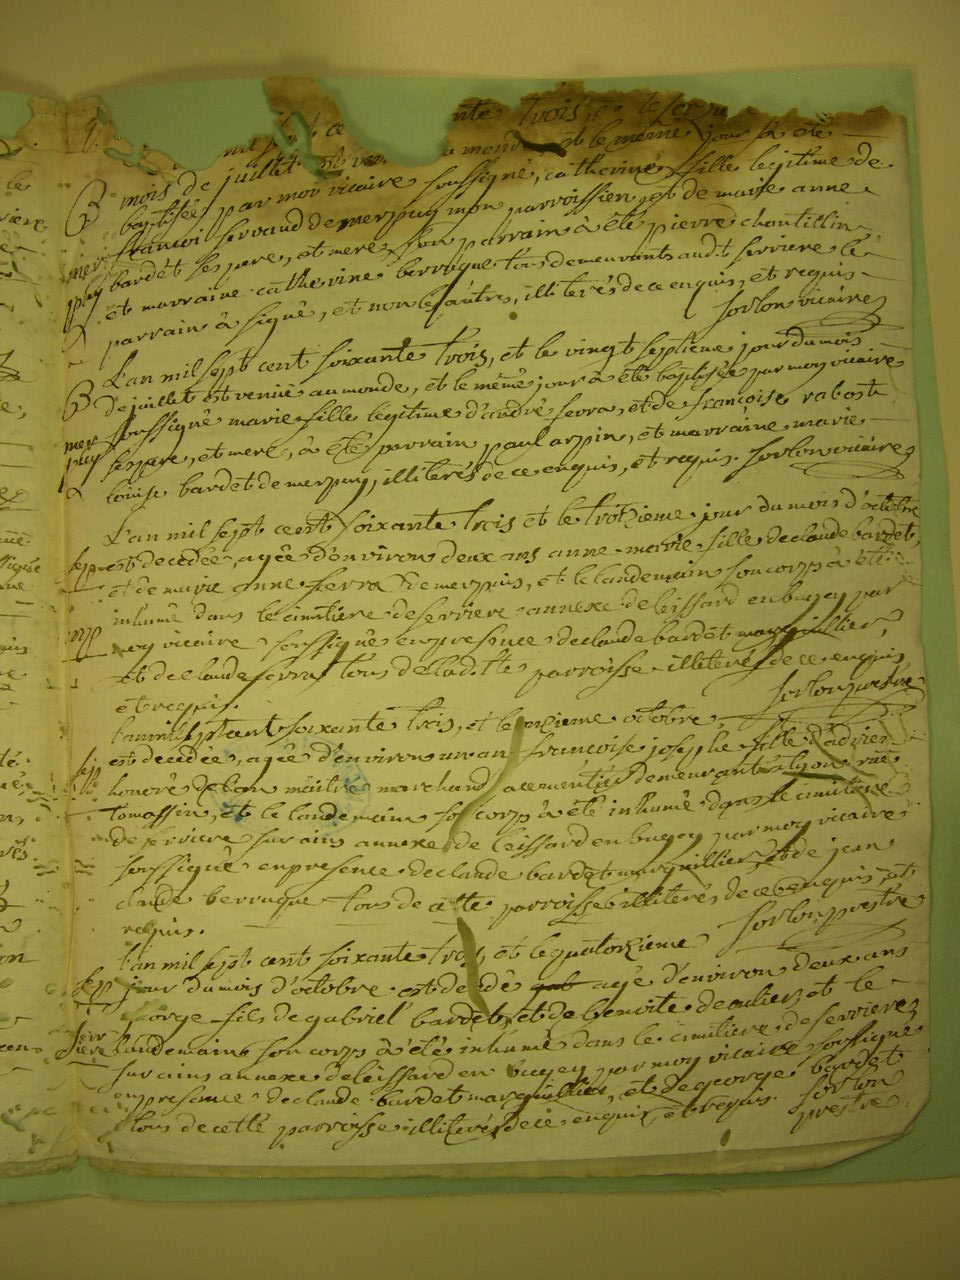 nte trois, et le
mois de juillet est au monde, et le même jour à été
B baptisée par moi vicaire soussigné, catherine fille legitime de
françoi servand de merpuy mon parroissien, et de marie anne
mer puy bardet ses pere, et mere, son parrain à été pierre chantillin,
et marraine catherine berruque tous demeurants audit serriere le
parrain à signé, et non les autres, illiterés de ce enquis, et requis
sorlon vicaire
L'an mil sept cent soixante trois, et le vingt septième jour du mois
B de juillet est venüe au monde, et le même jour à été baptisée par moy vicaire
mer soussigné marie fille legitime d'andré serra, et de françoise rabost
puy ses pere, et mere, à été parrain paul arpin, et marraine marie
louise bardet de merpuy, illiterés de ce enquis, et requis. sorlon vicaire
L'an mil sept cent soixante trois et le trotzieme jour du mois d'octobre
sep est decedée, agée d'environ deux ans anne marie fille de claude bardet,
et de marie anne serra de merpuis, et le landemain son corps à été
inhumé dans le cimitiere de serriere annexe de leissard en bugey par
moy vicaire soussigné en presence de claude bardet marguillier,
et de claude serra tous de laditte parroisse illiterés de ce enquis
et requis. sorlon prestre
L'an mil sept cent soixante trois, et le onzieme octobre,
sep est decedée, agée d'environ un an françoise josephe fille d'
honoré maitre marchand demeurant à lyon rüe
tomassin, et le landemain son corps à été inhumé dans le cimitiere
de serriere sur ains annexe de leissard en bugey par moy vicaire
soussigné en presence de claude bardet marguillier et de jean
claude berruque tous de cette parroisse illiterés de ce enquis et
requis. sorlon prestre
L'an mil sept cent soixante trois, et le quatorzieme
sep jour du mois d'octobre est decedé agé d'environ deux ans
george fils de gabriel bardet, et de benoite et le
serr iere landemain son corps à été inhumé dans le cimitiere de serriere
sur ains annexe de leissard en bugey par moy vicaire soussigné
en presence de claude bardet marguillier, et de george bardet
tous de cette parroisse illiterés de ce enquis, et requis. sorlon
prestre